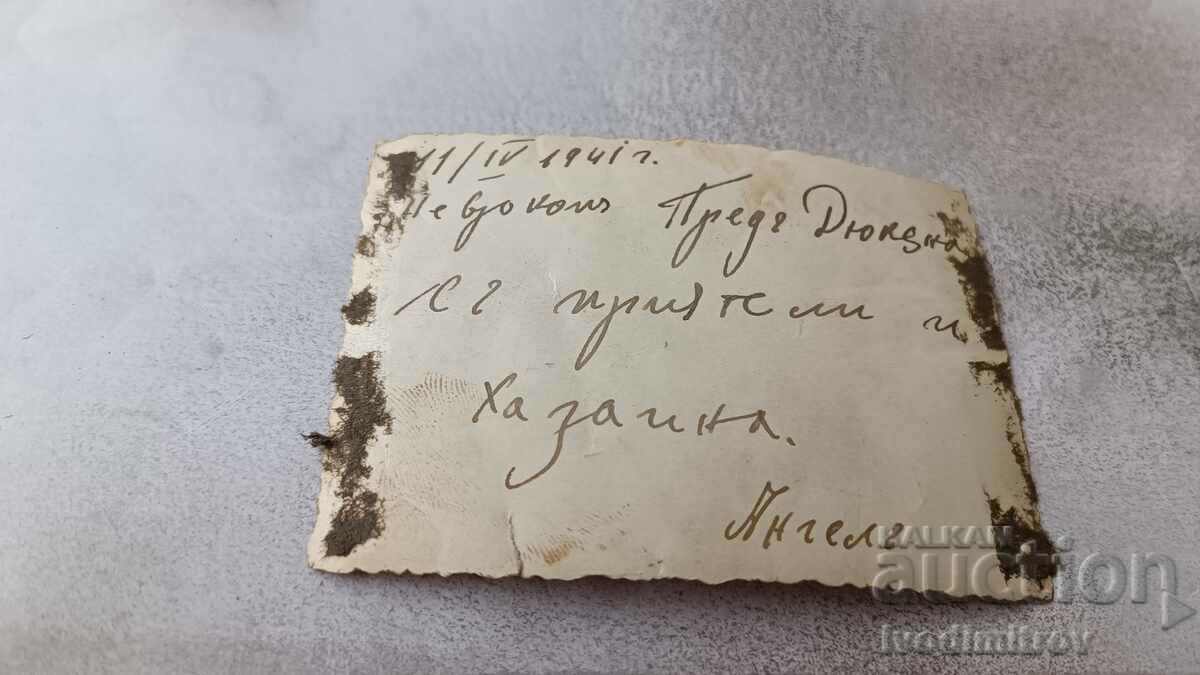 11/IV 1941 г.
Неврокопъ Предъ Дюкяна
съ приятели и
Хазаина.
Ангелъ
BALKAN
auction
ivodimitrov